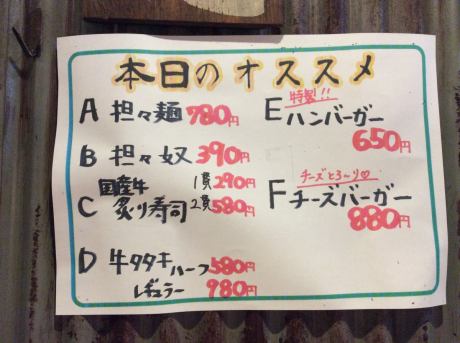 本日のオススメ
A 担々麺 780円
B 担々奴 390円
国産牛 1貫 290円
C 炙り寿司 2貫 580円
D 牛タタキ ハーフ 580円
レギュラー 980円
特製!!
E ハンバーガー
650円
チーズとろ〜り♡
F チーズバーガー
880円